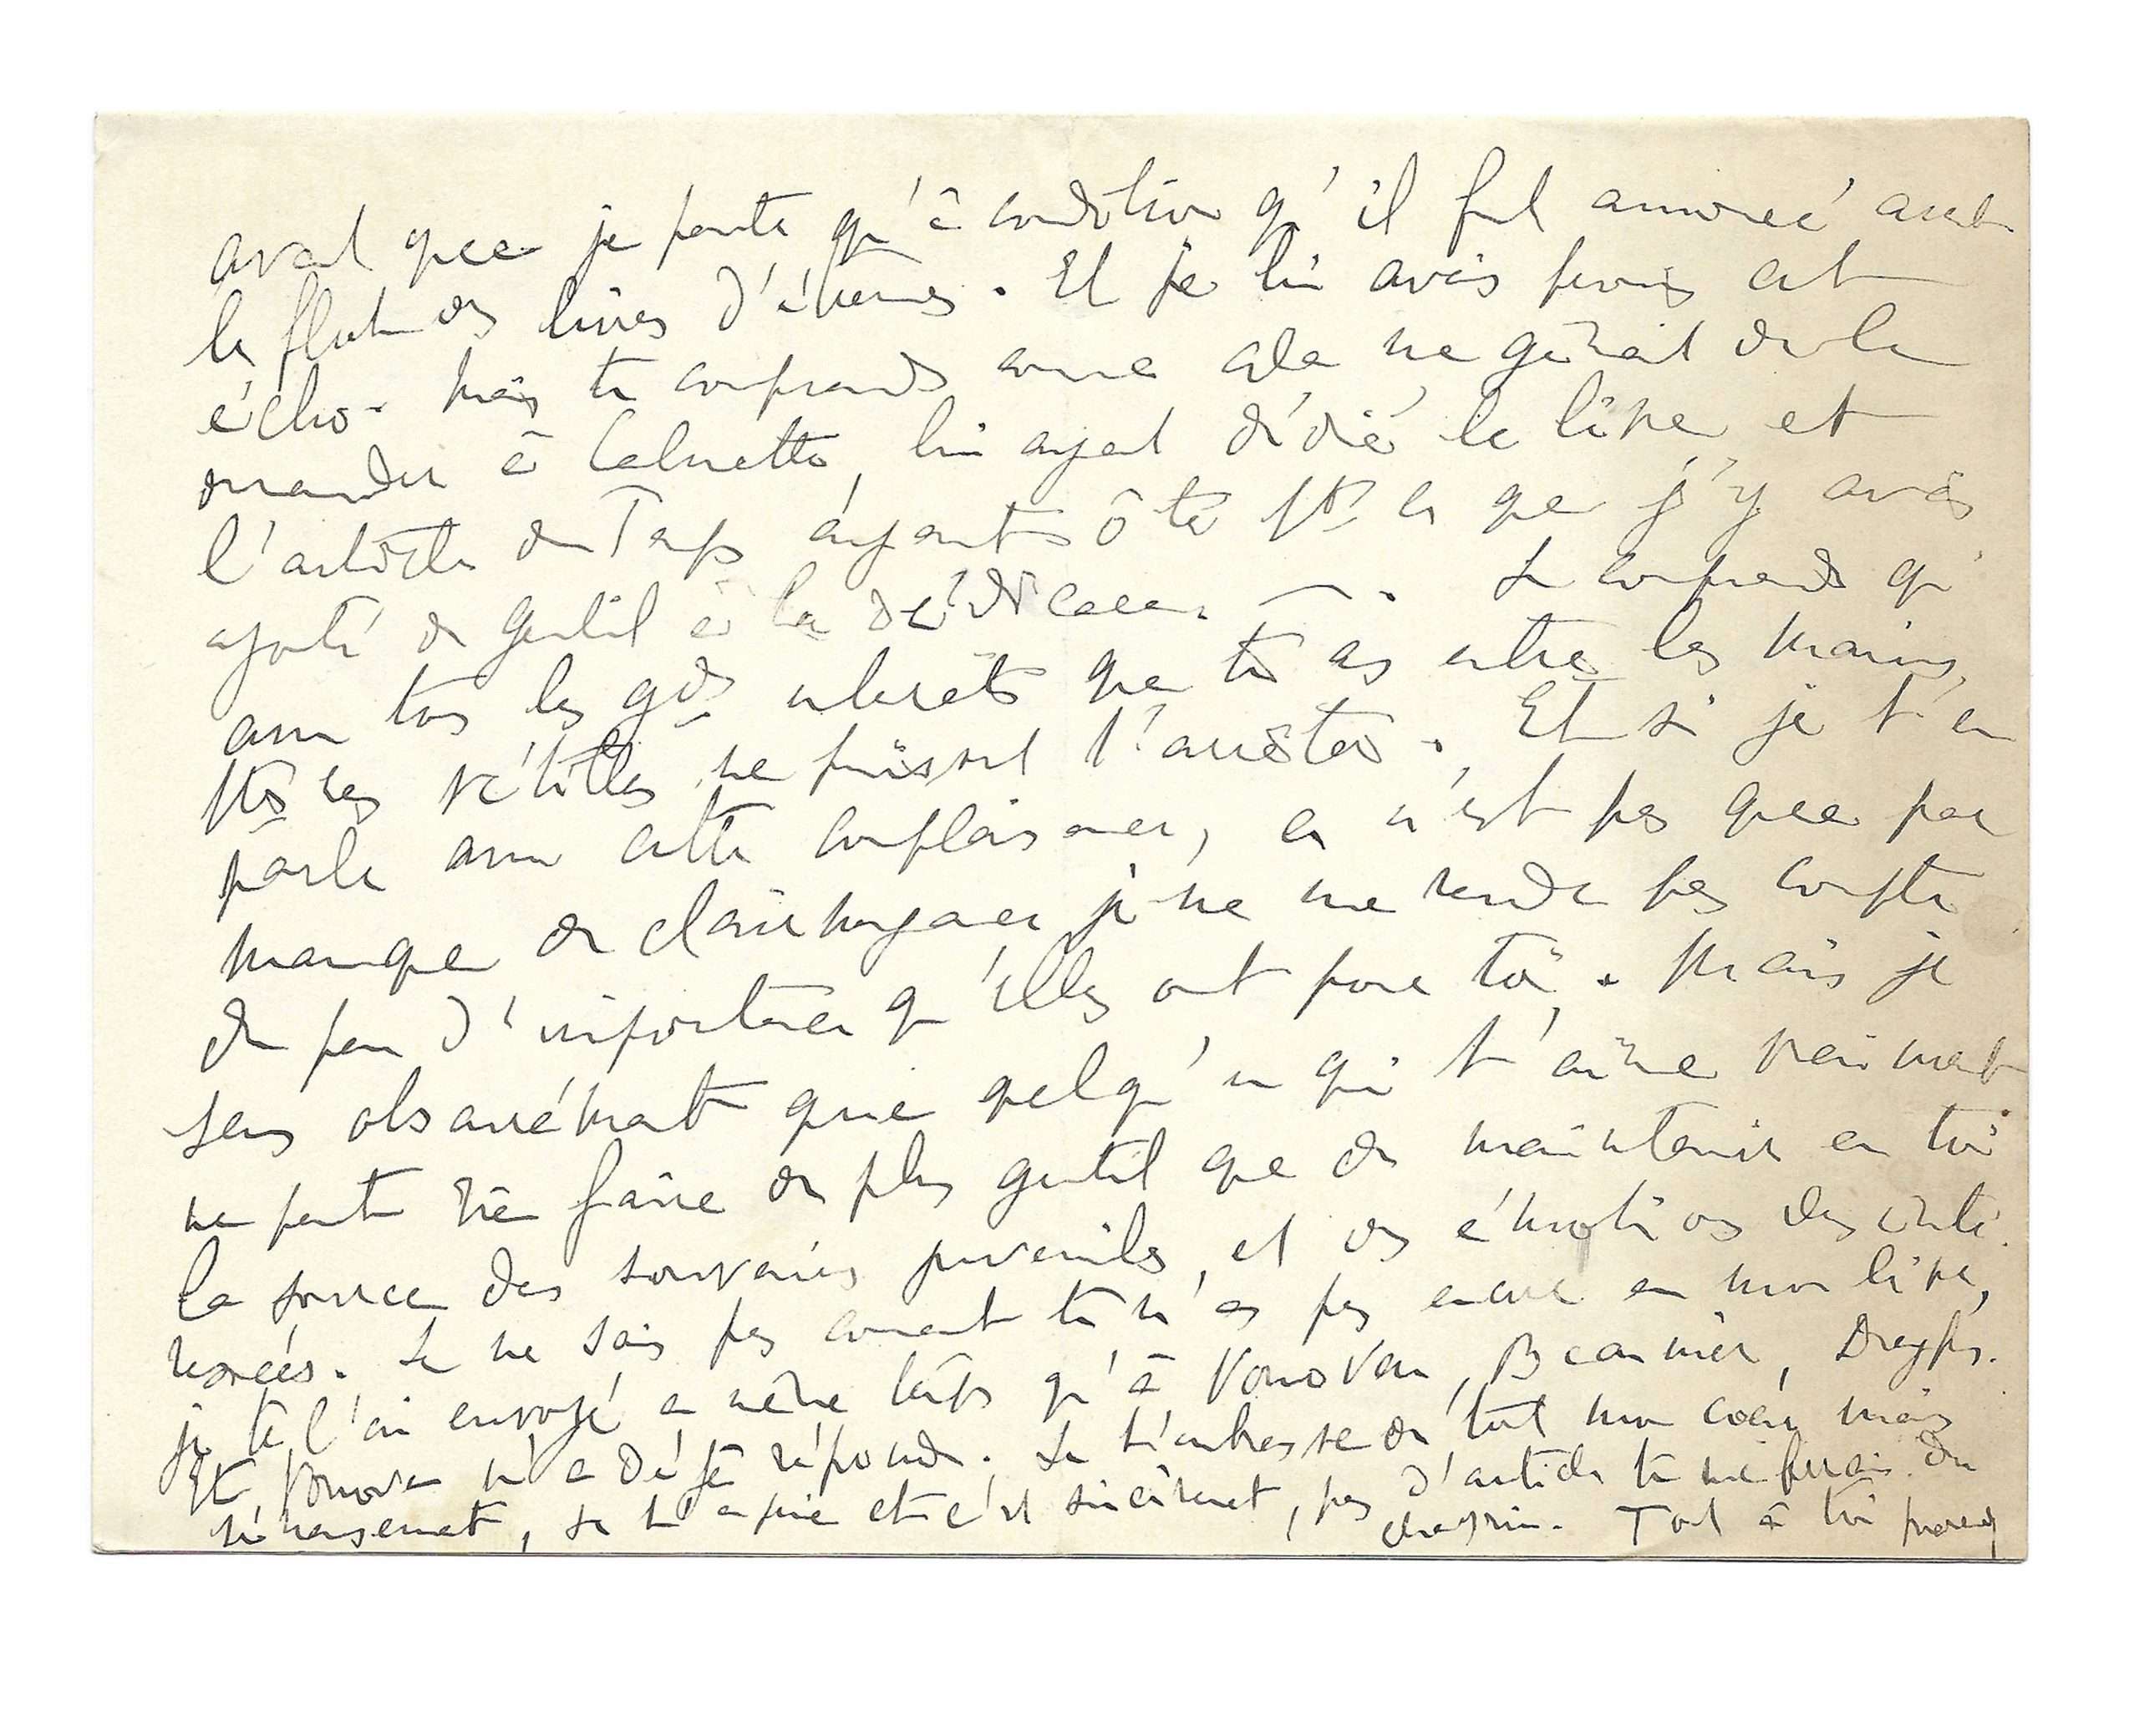 avant que je parte qu'à condition qu'il fut annoncé avant
le flot des livres d'étrennes. Et je lui avais promis cet
écho. Mais tu comprends comme cela me gênait de le
demander à Calmette, lui ayant dédié le livre, et
l'article du Temps ayant ôté ts ce que j'y avais
ajouté de gentil à la dédicace. Je comprends qu'
avec tous les gds intérêts que tu as entre les mains,
ttes ces vétilles ne puissent t'arrêter. Et si je t'en
parle avec cette complaisance, ce n'est pas que par
manque de clairvoyance je ne me rende pas compte
du peu d'importance qu'elles ont pour toi. Mais je
sens obscurément que quelqu'un qui t'aime vraiment
ne peut rien faire de plus gentil que de maintenir en toi
la source des souvenirs juvéniles, et des émotions désinté-
ressées. Je ne sais pas comment tu n'as pas encore eu mon livre,
je te l'ai envoyé en même temps qu'à Vonoven, Beaunier, Dreyfus.
Et Vonoven m'a déjà répondu. Je t'embrasse de tout mon coeur mais
sérieusement, je t'en prie et c'est sincèrement, pas d'article tu me ferais du
chagrin. Tout à toi Marcel